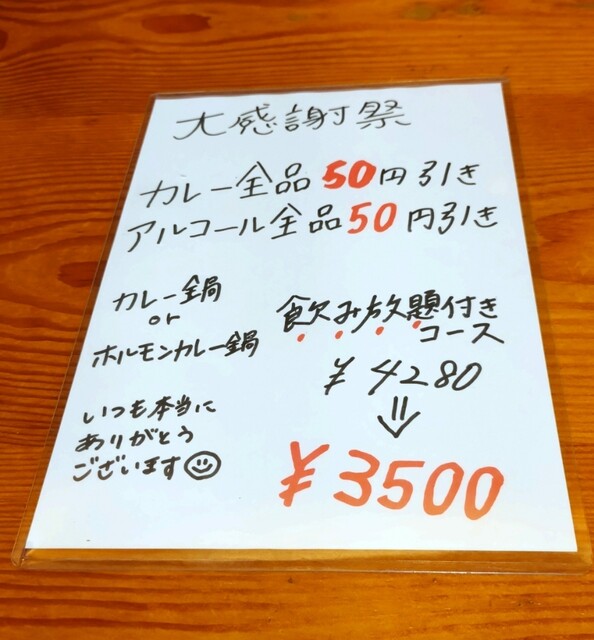 大感謝祭
カレー全品50円引き
アルコール全品50円引き
カレー鍋
or
ホルモンカレー鍋
飲み放題付き
コース
¥4280
⇓
¥3500
いつも本当に
ありがとう
ございます☺